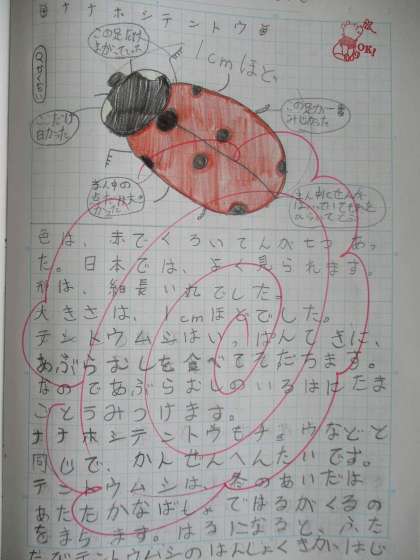 ナナホシテントウ
OK!
この足だけ
よがっていた
1cmほど
この足が一番
みじかかった
ここだけ
白かった
まん中の
点が大き
かった
色は、赤でくろいてんが七つあっ
た。日本では、よく見られます。
形は、細長い丸でした。
大きさは、1cmほどでした。
テントウムシはい,ぱんてきに、
あぶらむしを食べてそだちます。
なのであぶらむしのいるはにたま
ごとうみつけます。
ナナホシテントウもチョウなどと
同じで、かんぜんへんたいです。
テントウムシは、冬のあいだは、
あたたかなばしょではるがくるの
をまちます。はるになると、ふた
たびテントウムシのはんしょくきがはじ